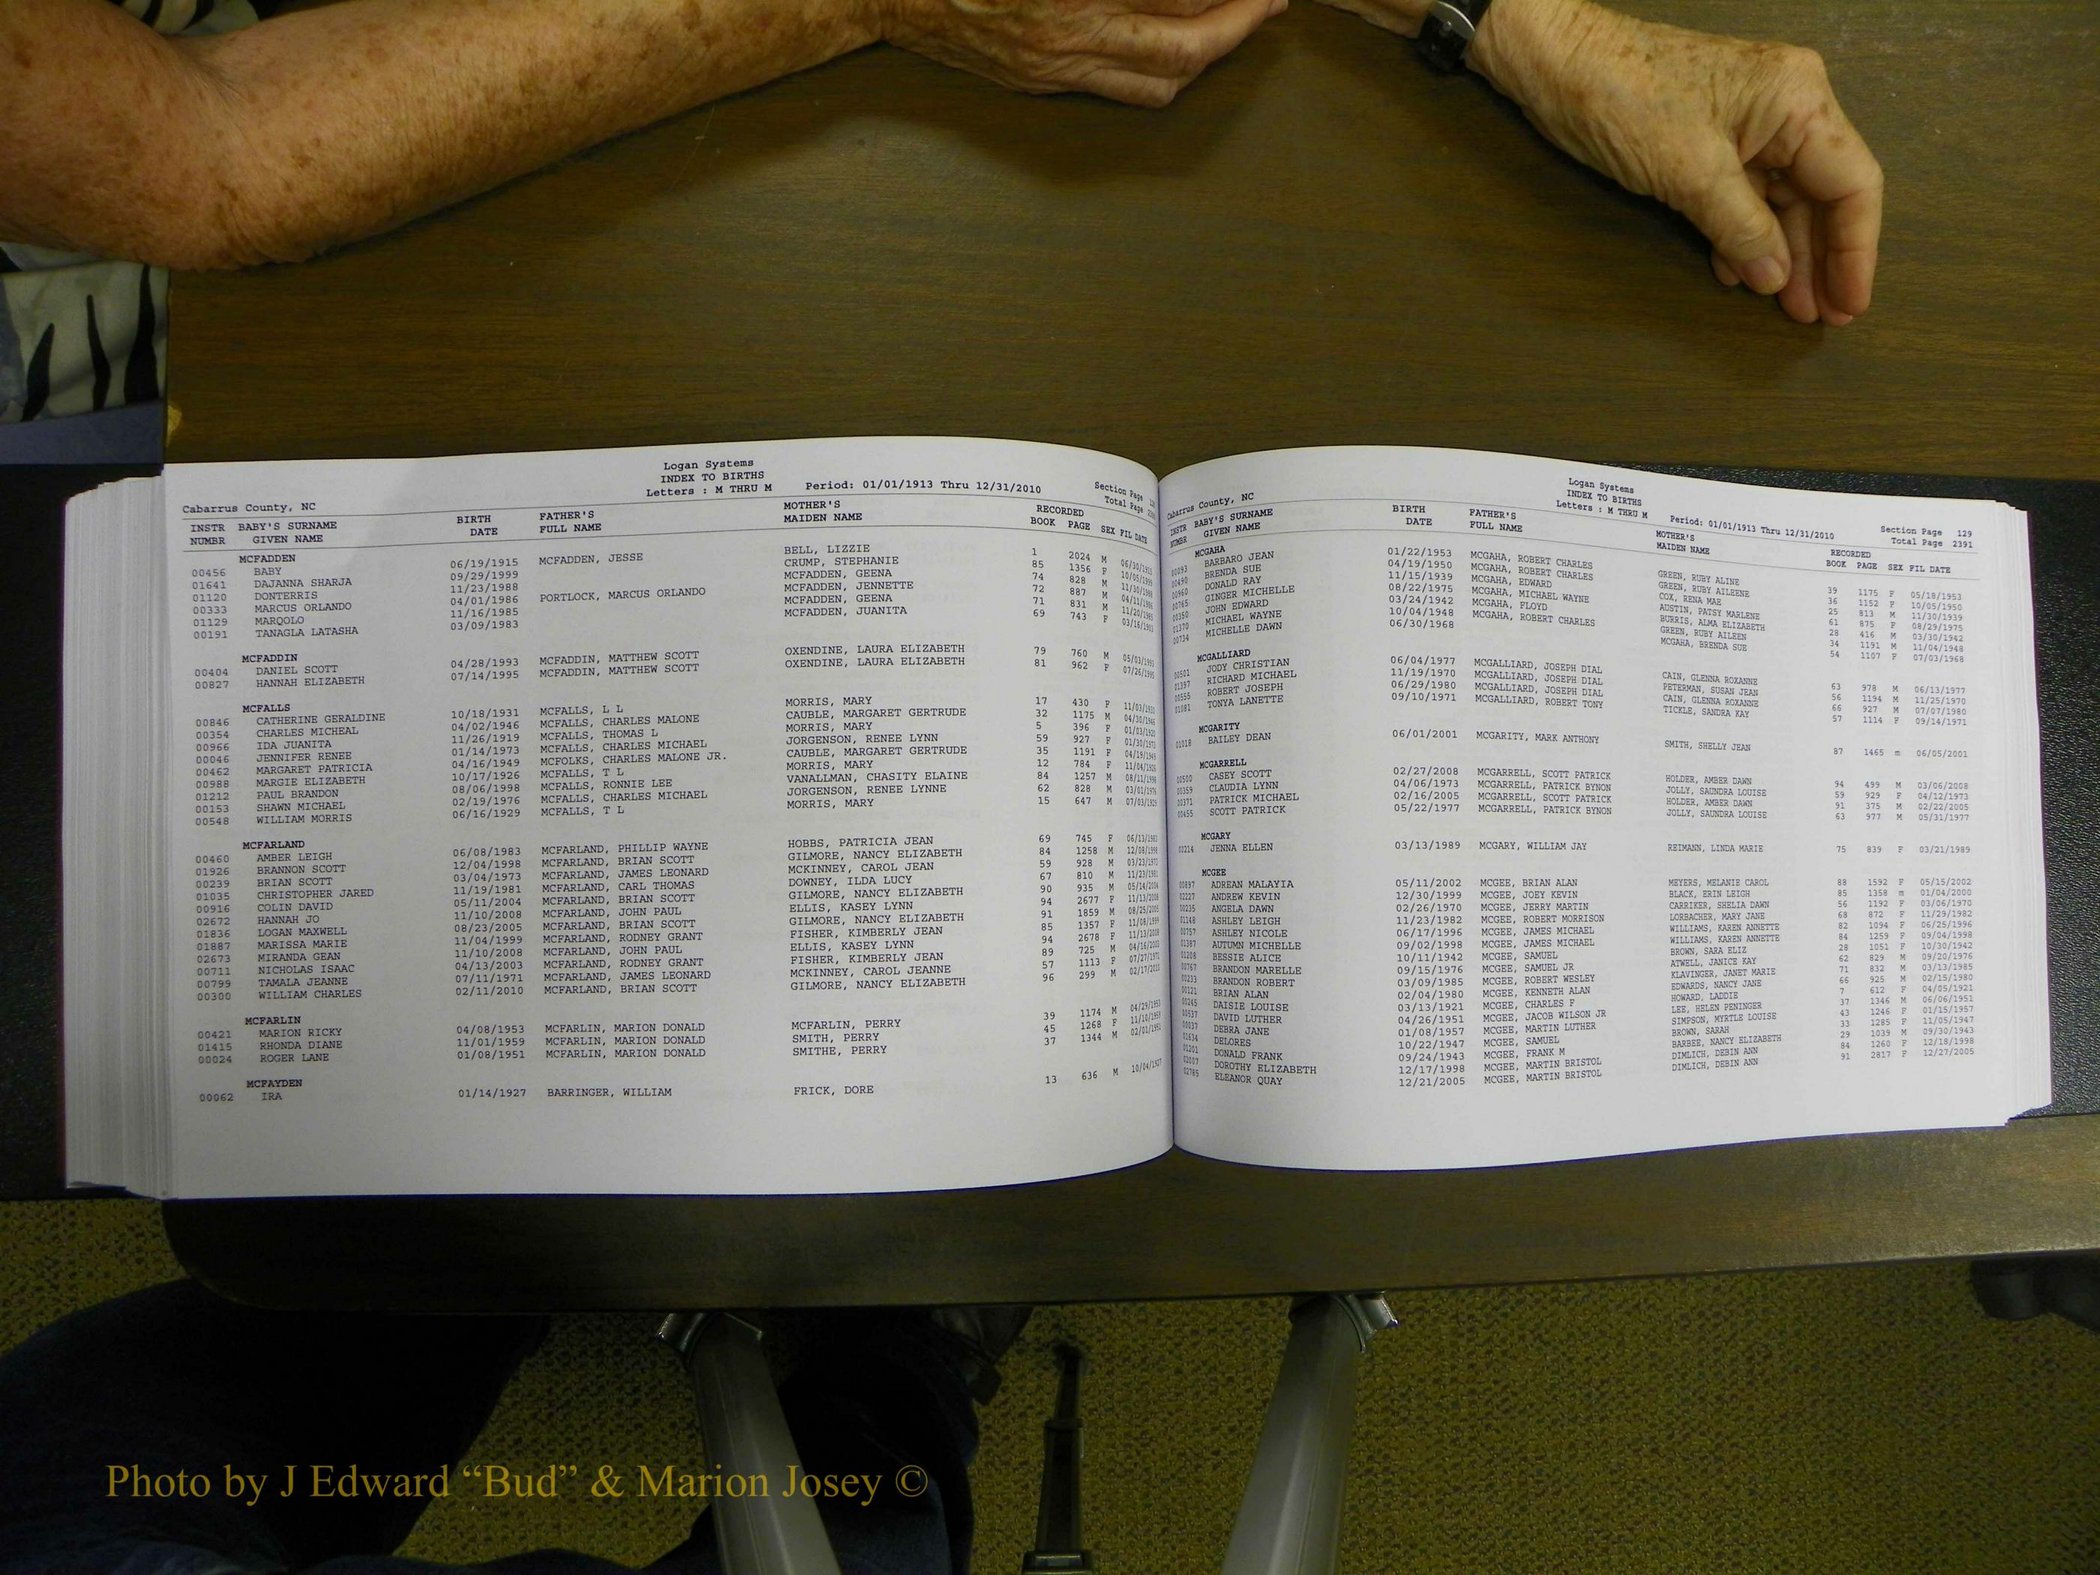 Logan Systems
INDEX TO BIRTHS
Letters : M THRU M Period: 01/01/1913 Thru 12/31/2010
Section Page
Total Page
Cabarrus County, NC
INSTR BABY'S SURNAME BIRTH FATHER'S MOTHER'S RECORDED
NUMBR GIVEN NAME DATE FULL NAME MAIDEN NAME BOOK PAGE SEX FIL DATE
MCFADDEN
00456 BABY 06/19/1915 MCFADDEN, JESSE BELL, LIZZIE 1 2024 M
01641 DAJANNA SHARJA 09/29/1999 CRUMP, STEPHANIE 85 1356 F 10/05/1999
01120 DONTERRIS 11/23/1988 MCFADDEN, GEENA 74 828 M 11/30/1988
00333 MARCUS ORLANDO 04/01/1986 PORTLOCK, MARCUS ORLANDO MCFADDEN, JENNETTE 72 887 M 04/11/1986
01129 MARQOLO 11/16/1985 MCFADDEN, GEENA 71 831 M
00191 TANAGLA LATASHA 03/09/1983 MCFADDEN, JUANITA 69 743 F 03/16/1983
MCFADDIN
00404 DANIEL SCOTT 04/28/1993 MCFADDIN, MATTHEW SCOTT OXENDINE, LAURA ELIZABETH 79 760 M 05/03/1993
00827 HANNAH ELIZABETH 07/14/1995 MCFADDIN, MATTHEW SCOTT OXENDINE, LAURA ELIZABETH 81 962 F 07/26/1995
MCFALLS
00846 CATHERINE GERALDINE 10/18/1931 MCFALLS, L L MORRIS, MARY 17 430 F
00354 CHARLES MICHEAL 04/02/1946 MCFALLS, CHARLES MALONE CAUBLE, MARGARET GERTRUDE 32 1175 M
00966 IDA JUANITA 11/26/1919 MCFALLS, THOMAS L MORRIS, MARY 5 396 F
00046 JENNIFER RENEE 01/14/1973 MCFALLS, CHARLES MICHAEL JORGENSON, RENEE LYNN 59 927 F
00462 MARGARET PATRICIA 04/16/1949 MCFOLKS, CHARLES MALONE JR. CAUBLE, MARGARET GERTRUDE 35 1191 F
00988 MARGIE ELIZABETH 10/17/1926 MCFALLS, T L MORRIS, MARY 12 784 F
01212 PAUL BRANDON 08/06/1998 MCFALLS, RONNIE LEE VANALLMAN, CHASITY ELAINE 84 1257 M 08/11/1998
00153 SHAWN MICHAEL 02/19/1976 MCFALLS, CHARLES MICHAEL JORGENSON, RENEE LYNNE 62 828 M 03/01/1976
00548 WILLIAM MORRIS 06/16/1929 MCFALLS, T L MORRIS, MARY 15 647 M 07/03/1929
MCFARLAND
00460 AMBER LEIGH 06/08/1983 MCFARLAND, PHILLIP WAYNE HOBBS, PATRICIA JEAN 69 745 F 06/13/1983
01926 BRANNON SCOTT 12/04/1998 MCFARLAND, BRIAN SCOTT GILMORE, NANCY ELIZABETH 84 1258 M 12/08/1998
00239 BRIAN SCOTT 03/04/1973 MCFARLAND, JAMES LEONARD MCKINNEY, CAROL JEAN 59 928 M 03/23/1973
01035 CHRISTOPHER JARED 11/19/1981 MCFARLAND, CARL THOMAS DOWNEY, ILDA LUCY 67 810 M 11/23/1981
00916 COLIN DAVID 05/11/2004 MCFARLAND, BRIAN SCOTT GILMORE, NANCY ELIZABETH 90 935 M 05/14/2004
02672 HANNAH JO 11/10/2008 MCFARLAND, JOHN PAUL ELLIS, KASEY LYNN 94 2677 F 11/13/2008
01836 LOGAN MAXWELL 08/23/2005 MCFARLAND, BRIAN SCOTT GILMORE, NANCY ELIZABETH 91 1859 M 08/25/2005
01887 MARISSA MARIE 11/04/1999 MCFARLAND, RODNEY GRANT FISHER, KIMBERLY JEAN 85 1357 F
02673 MIRANDA GEAN 11/10/2008 MCFARLAND, JOHN PAUL ELLIS, KASEY LYNN 94 2678 F
00711 NICHOLAS ISAAC 04/13/2003 MCFARLAND, RODNEY GRANT FISHER, KIMBERLY JEAN 89 725 M 04/16/2003
00799 TAMALA JEANNE 07/11/1971 MCFARLAND, JAMES LEONARD MCKINNEY, CAROL JEANNE 57 1113 F 07/27/1971
00300 WILLIAM CHARLES 02/11/2010 MCFARLAND, BRIAN SCOTT GILMORE, NANCY ELIZABETH 96 299 M 02/17/2010
MCFARLIN
00421 MARION RICKY 04/08/1953 MCFARLIN, MARION DONALD MCFARLIN, PERRY 39 1174 M 04/29/1953
01415 RHONDA DIANE 11/01/1959 MCFARLIN, MARION DONALD SMITH, PERRY 45 1268 F 11/10/1959
00024 ROGER LANE 01/08/1951 MCFARLIN, MARION DONALD SMITHE, PERRY 37 1344 M 02/01/1951
MCFAYDEN
00062 IRA 01/14/1927 BARRINGER, WILLIAM FRICK, DORE 13 636 M 10/04/1927
Logan Systems
INDEX TO BIRTHS
Letters : M THRU M Period: 01/01/1913 Thru 12/31/2010
Section Page 129
Total Page 2391
Cabarrus County, NC
INSTR BABY'S SURNAME BIRTH FATHER'S MOTHER'S RECORDED
NUMBR GIVEN NAME DATE FULL NAME MAIDEN NAME BOOK PAGE SEX FIL DATE
MCGAHA
00093 BARBARO JEAN 01/22/1953 MCGAHA, ROBERT CHARLES GREEN, RUBY ALINE 39 1175 F 05/18/1953
00490 BRENDA SUE 04/19/1950 MCGAHA, ROBERT CHARLES GREEN, RUBY AILEENE 36 1152 F 10/05/1950
00960 DONALD RAY 11/15/1939 MCGAHA, EDWARD COX, RENA MAE 25 813 M 11/30/1939
00765 GINGER MICHELLE 08/22/1975 MCGAHA, MICHAEL WAYNE AUSTIN, PATSY MARLENE 61 875 F 08/29/1975
00350 JOHN EDWARD 03/24/1942 MCGAHA, FLOYD BURRIS, ALMA ELIZABETH 28 416 M 03/30/1942
01370 MICHAEL WAYNE 10/04/1948 MCGAHA, ROBERT CHARLES GREEN, RUBY AILEEN 34 1191 M 11/04/1948
00734 MICHELLE DAWN 06/30/1968 MCGAHA, BRENDA SUE 54 1107 F 07/03/1968
MCGALLIARD
00502 JODY CHRISTIAN 06/04/1977 MCGALLIARD, JOSEPH DIAL CAIN, GLENNA ROXANNE 63 978 M 06/13/1977
01397 RICHARD MICHAEL 11/19/1970 MCGALLIARD, JOSEPH DIAL PETERMAN, SUSAN JEAN 56 1194 M 11/25/1970
00555 ROBERT JOSEPH 06/29/1980 MCGALLIARD, JOSEPH DIAL CAIN, GLENNA ROXANNE 66 927 M 07/07/1980
01081 TONYA LANETTE 09/10/1971 MCGALLIARD, ROBERT TONY TICKLE, SANDRA KAY 57 1114 F 09/14/1971
MCGARITY
01018 BAILEY DEAN 06/01/2001 MCGARITY, MARK ANTHONY SMITH, SHELLY JEAN 87 1465 m 06/05/2001
MCGARRELL
00500 CASEY SCOTT 02/27/2008 MCGARRELL, SCOTT PATRICK HOLDER, AMBER DAWN 94 499 M 03/06/2008
00359 CLAUDIA LYNN 04/06/1973 MCGARRELL, PATRICK BYNON JOLLY, SAUNDRA LOUISE 59 929 F 04/12/1973
00371 PATRICK MICHAEL 02/16/2005 MCGARRELL, SCOTT PATRICK HOLDER, AMBER DAWN 91 375 M 02/22/2005
00455 SCOTT PATRICK 05/22/1977 MCGARRELL, PATRICK BYNON JOLLY, SAUNDRA LOUISE 63 977 M 05/31/1977
MCGARY
00214 JENNA ELLEN 03/13/1989 MCGARY, WILLIAM JAY REIMANN, LINDA MARIE 75 839 F 03/21/1989
MCGEE
00897 ADREAN MALAYIA 05/11/2002 MCGEE, BRIAN ALAN MEYERS, MELANIE CAROL 88 1592 F 05/15/2002
02227 ANDREW KEVIN 12/30/1999 MCGEE, JOEY KEVIN BLACK, ERIN LEIGH 85 1358 m 01/04/2000
00235 ANGELA DAWN 02/26/1970 MCGEE, JERRY MARTIN CARRIKER, SHELIA DAWN 56 1192 F 03/06/1970
01148 ASHLEY LEIGH 11/23/1982 MCGEE, ROBERT MORRISON LORBACHER, MARY JANE 68 872 F 11/29/1982
00757 ASHLEY NICOLE 06/17/1996 MCGEE, JAMES MICHAEL WILLIAMS, KAREN ANNETTE 82 1094 F 06/25/1996
01387 AUTUMN MICHELLE 09/02/1998 MCGEE, JAMES MICHAEL WILLIAMS, KAREN ANNETTE 84 1259 F 09/04/1998
01208 BESSIE ALICE 10/11/1942 MCGEE, SAMUEL BROWN, SARA ELIZ 28 1051 F 10/30/1942
00767 BRANDON MARELLE 09/15/1976 MCGEE, SAMUEL JR ATWELL, JANICE KAY 62 829 M 09/20/1976
00233 BRANDON ROBERT 03/09/1985 MCGEE, ROBERT WESLEY KLAVINGER, JANET MARIE 71 832 M 03/13/1985
00121 BRIAN ALAN 02/04/1980 MCGEE, KENNETH ALAN EDWARDS, NANCY JANE 66 925 M 02/15/1980
00245 DAISIE LOUISE 03/13/1921 MCGEE, CHARLES F HOWARD, LADDIE 7 612 F 04/05/1921
00537 DAVID LUTHER 04/26/1951 MCGEE, JACOB WILSON JR LEE, HELEN PENINGER 37 1346 M 06/06/1951
00037 DEBRA JANE 01/08/1957 MCGEE, MARTIN LUTHER SIMPSON, MYRTLE LOUISE 43 1246 F 01/15/1957
01634 DELORES 10/22/1947 MCGEE, SAMUEL BROWN, SARAH 33 1285 F 11/05/1947
01201 DONALD FRANK 09/24/1943 MCGEE, FRANK M BARBEE, NANCY ELIZABETH 29 1039 M 09/30/1943
02007 DOROTHY ELIZABETH 12/17/1998 MCGEE, MARTIN BRISTOL DIMLICH, DEBIN ANN 84 1260 F 12/18/1998
02785 ELEANOR QUAY 12/21/2005 MCGEE, MARTIN BRISTOL DIMLICH, DEBIN ANN 91 2817 F 12/27/2005
Photo by J Edward “Bud” & Marion Josey ©